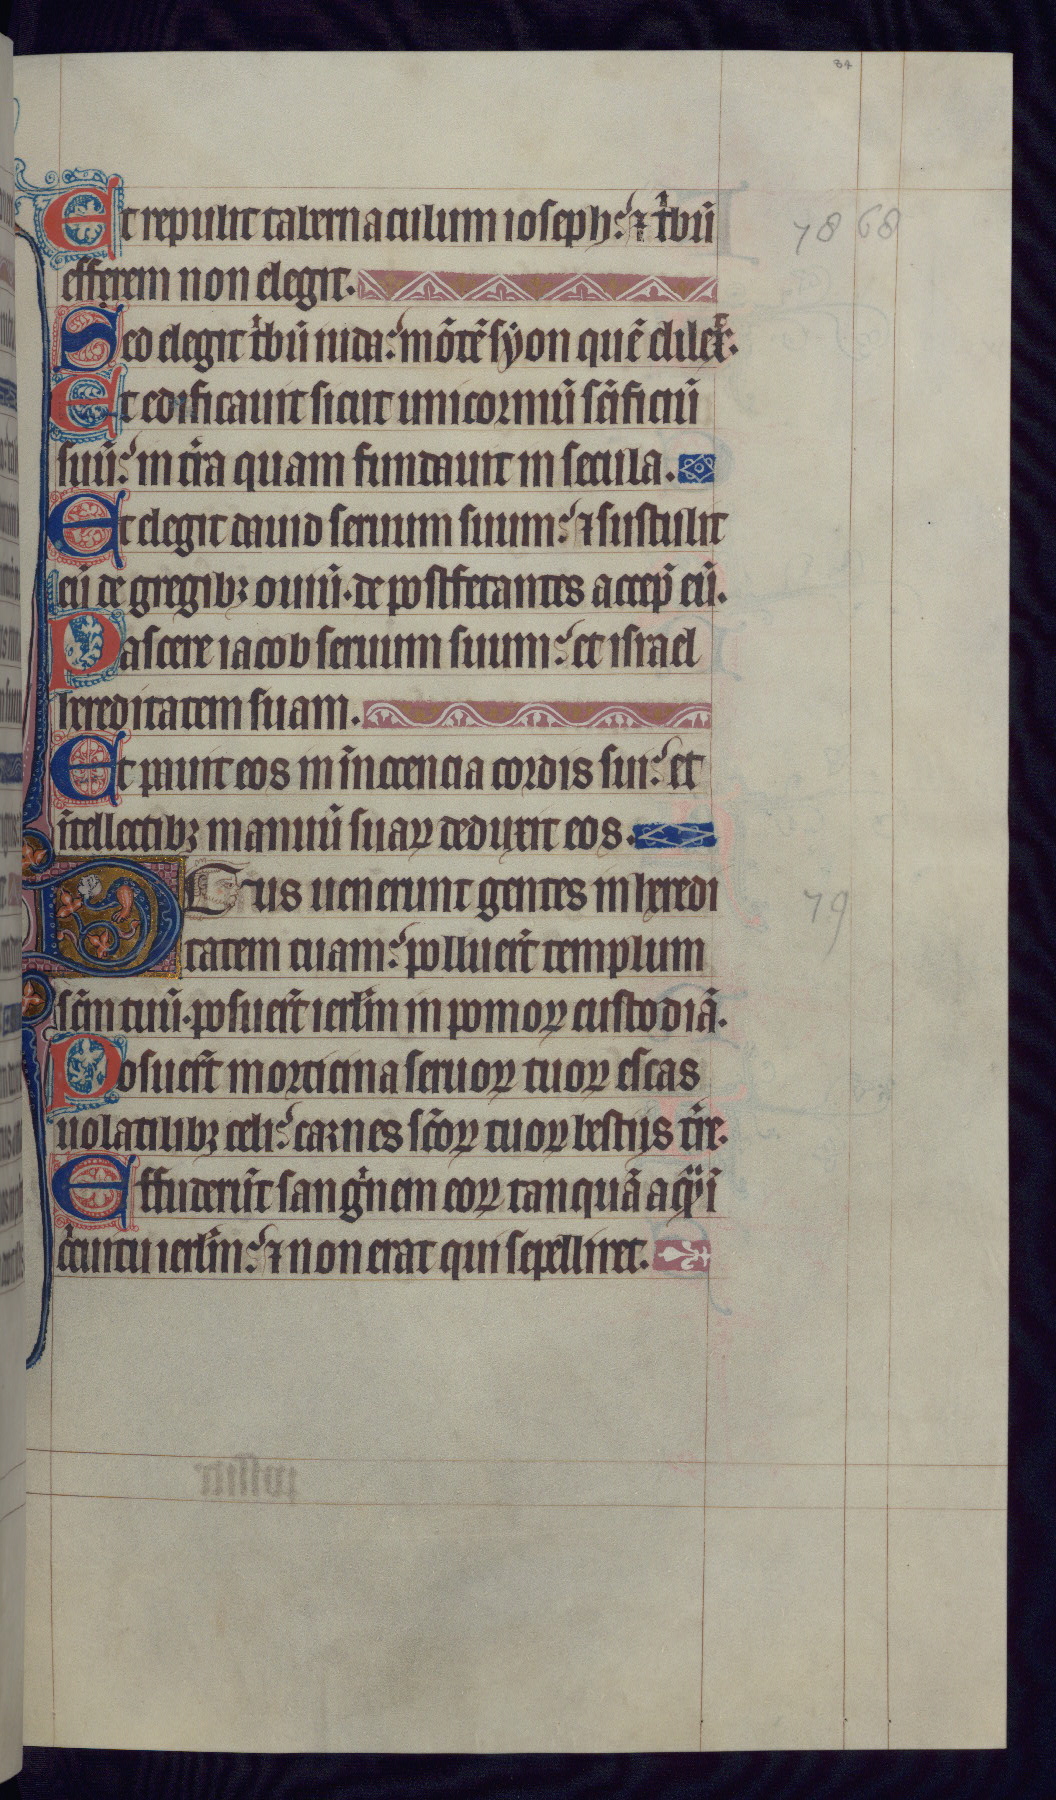 84
Et repulit tabernaculum ioseph: ⁊ t̍bū
78 68
effrem non elegit.
Sed elegit t̍bū iuda: mōtē syon quē dilex̄.
Et edificauit sicut unicorniū sc̄ificiū
suū: in tr̄a quam fundauit in secula.
Et elegit dauid seruum suum: ⁊ sustulit
eū de gregibꝫ ouiū. de postfetantes accep̄ eū.
Pascere iacob seruum suum: et israel
hereditatem suam.
Et pauit eos in īnocencia cordis sui: et
ītellectibꝫ manuū suaꝝ deduxit eos.
Deus uenerunt gentes in heredi
79
tatem tuam: polluer̄t templum
sc̄m tuū. posuer̄t ierlm̄ in pomoꝝ custodiā.
Posuer̄t morticina seruoꝝ tuoꝝ escas
uolatilibꝫ celi: carnes sc̄oꝝ tuoꝝ bestijs tr̄e.
Effuderūt sangͥnem eoꝝ tanquā aqͣ ī
cͥcuitu ierlm̄: ⁊ non erat qui sepelliret.